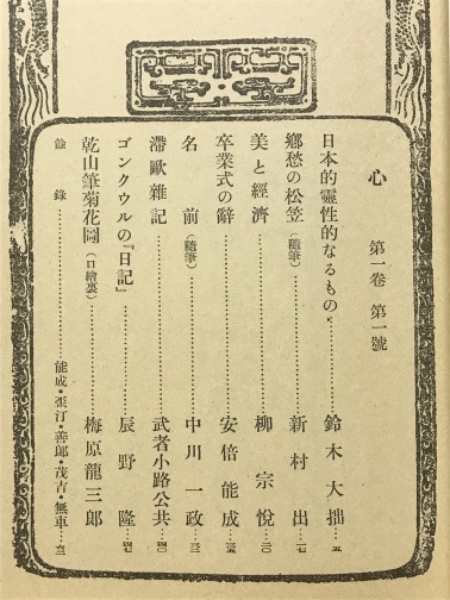 心 第一卷 第一號
日本的靈性的なるもの……鈴木大拙……五
鄕愁の松笠（隨筆）……新村出……一七
美と經濟……柳宗悅……二〇
卒業式の辭……安倍能成……
名前（隨筆）……中川一政……
滯歐雜記……武者小路公共……
ゴンクウルの『日記』……辰野隆……
乾山筆菊花圖（口繪裏）……梅原龍三郎
餘錄……能成・歪汀・善郞・茂吉・無車……